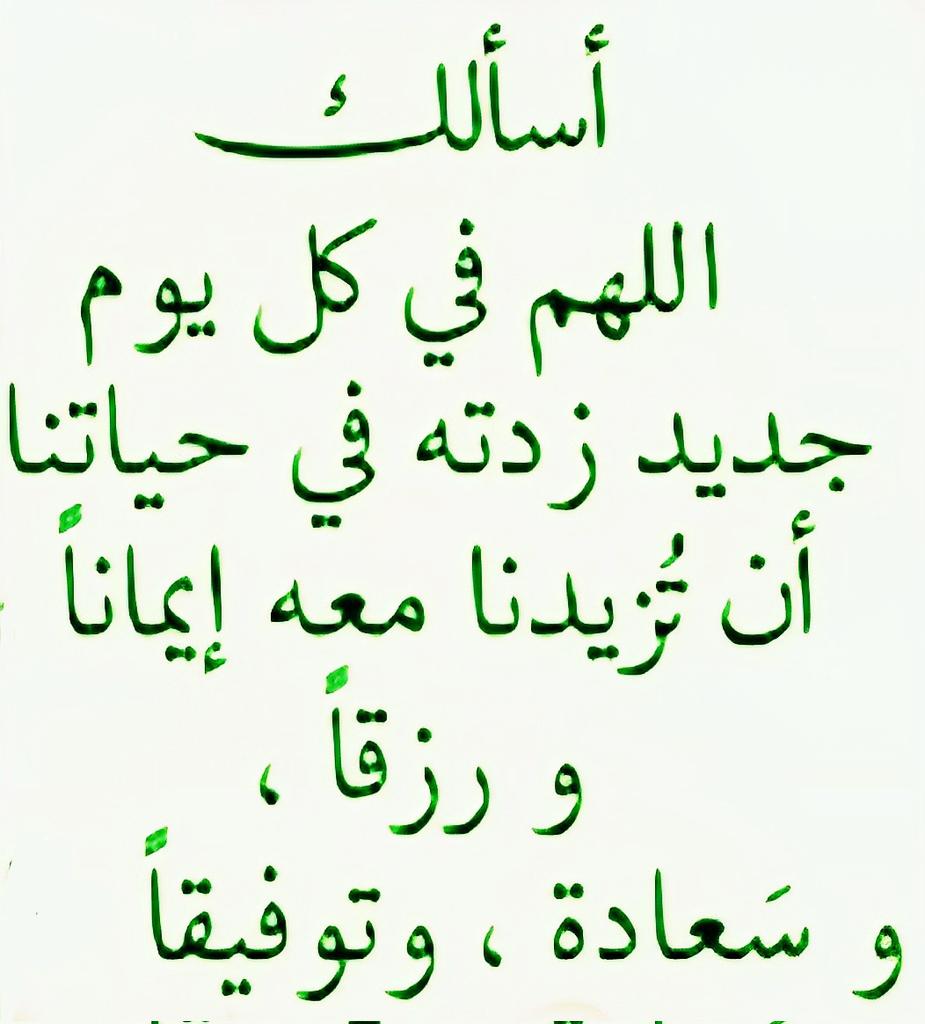 أسألك
اللهم في كل يوم
جديد زدته في حياتنا
أن تُزيدنا معه إيماناً
و رزقاً ،
و سَعادة ، وتوفيقاً